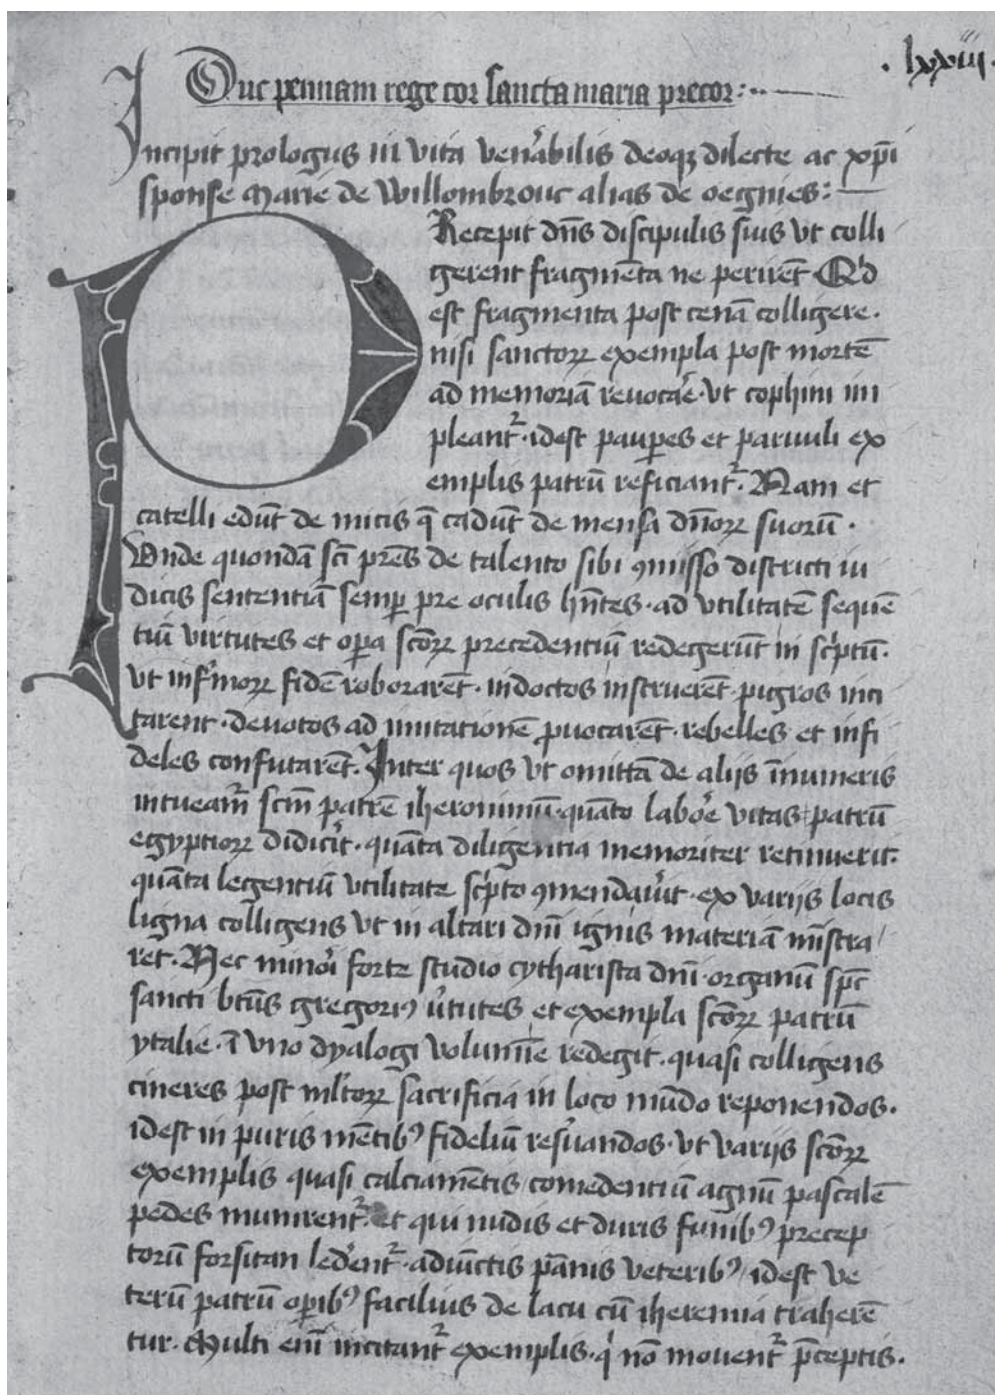 lxxiii.
Duc pennam rege cor sancta maria precor:
Incipit prologus in vita ven̾abilis deoqꝫ dilecte ac xp̄i
sponse Marie de Willombrouc alias de oegnies:
PRecepit dn̄s discipulis suis vt colli
gerent fragmēta ne perirēt Qd̾
est fragmenta post cenā colligere.
nisi sanctoꝝ exempla post mortē
ad memoriā reuocar̄e. vt cophini im
pleant᷑. idest paup̱es et paruuli ex
emplis patrū reficiant᷑. Nam et
catelli edūt de micis q̄ cadūt de mensa dn̄oꝝ suorū.
Vnde quondā sc̄i pr̄es de talento sibi ꝯmisso districti iu
dicis sententiā semꝑ pre oculis hn̄tes. ad vtilitatē sequē
tiū virtutes et oꝑa sc̄oꝝ precedentiū redegerūt in sc̾ptū.
vt infi̾moꝝ fidē roborarēt. indoctos instruerēt. pigros inci
tarent. deuotos ad imitationē ꝓuocarēt. rebelles et infi
deles confutarēt. Inter quos vt omittā de alijs īnumeris
intueam᷑ sc̄m patrē iheronimū. quāto labor̄e vitas patrū
egyptioꝝ didicer̾it. quāta diligentia memoriter retinuerit.
quāta legentiū vtilitate sc̾pto ꝯmendau̾it. ex varijs locis
ligna colligens vt in altari dn̄i ignis materiā mi̅stra
ret. Nec mino̾i forte studio cytharista dn̄i. organū sp̄c
sancti bt̄us gregoriꝰ v̾tutes et exempla sc̄oꝝ patrū
ytalie. ī vno dyalogi volumīe redegit. quasi colligens
cineres post ml̾toꝝ sacrificia in loco mūdo reponendos.
idest in puris mētibꝰ fideliū res̾uandos. vt varijs sc̄oꝝ
exemplis quasi calciamētis comedentiū agnū pascalē
pedes munirent᷑. et qui nudis et duris funibꝰ precep
torū forsitan led̾ent᷑. adiūctis pānis veteribꝰ idest ve
terū patrū oꝑibꝰ facilius de lacu cū iheremia traherē
tur. Multi em̄ incitant᷑ exemplis. q̾ nō mouent᷑ p̄ceptis.